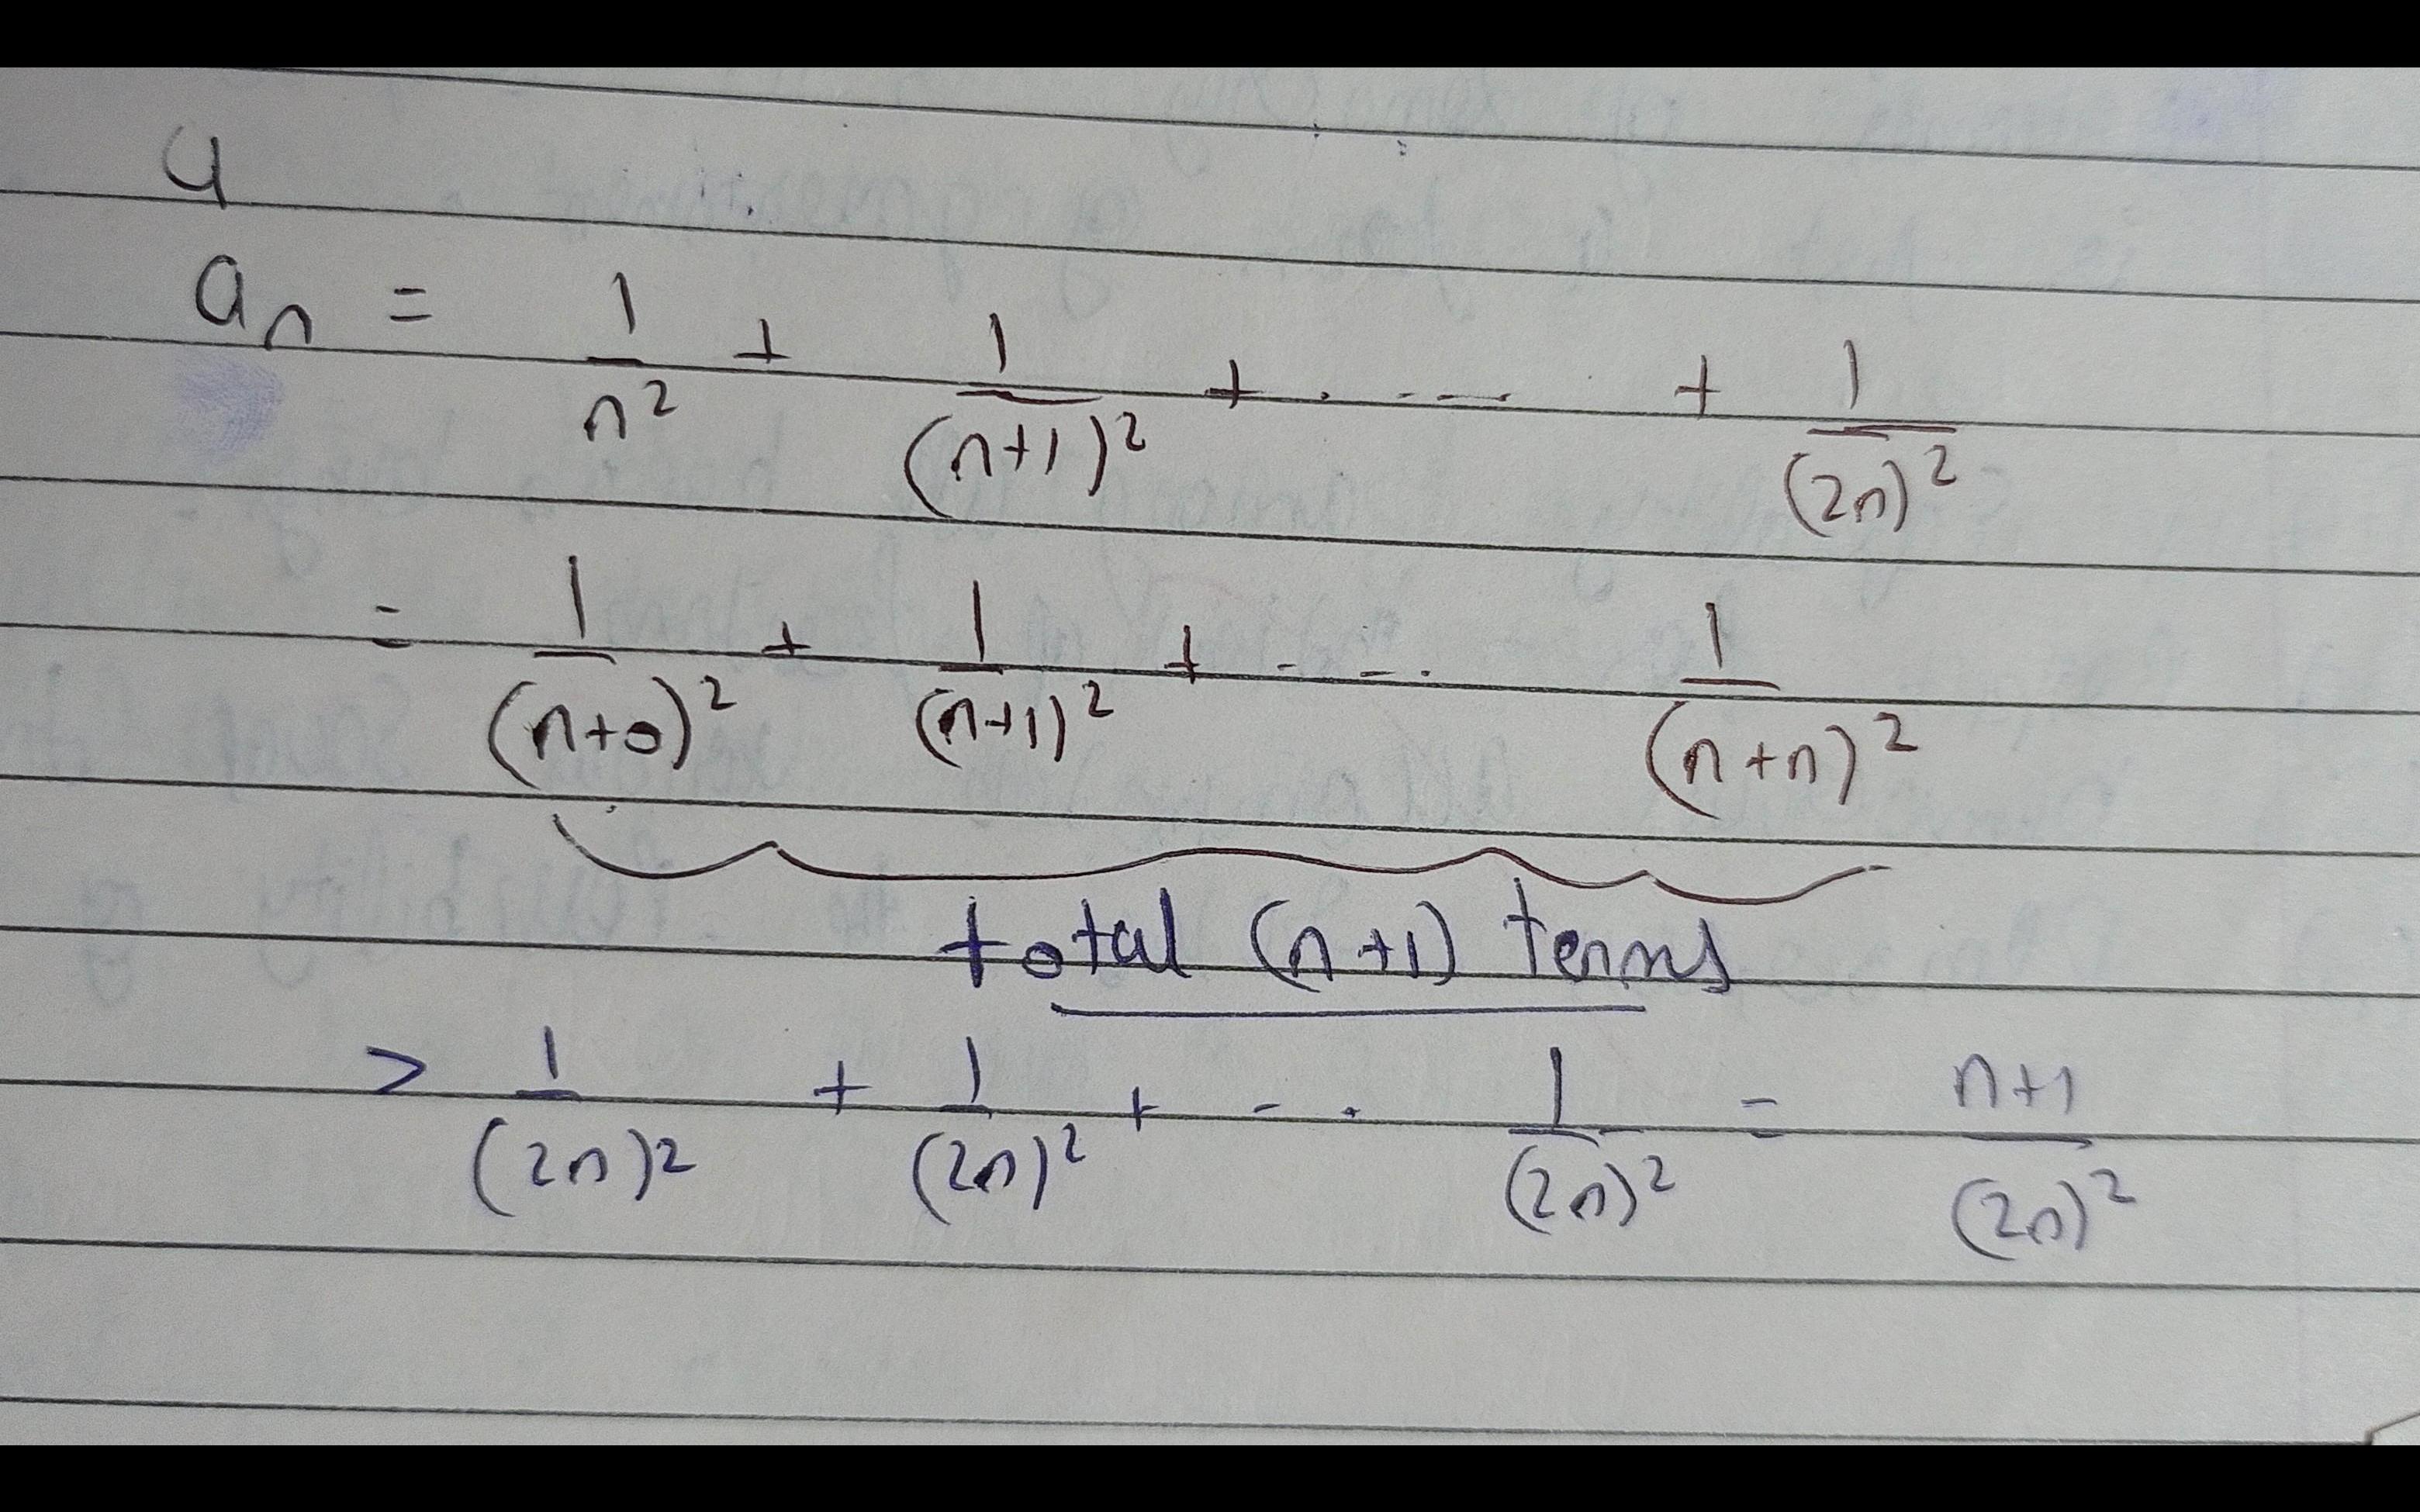 a_n = 1/n² + 1/(n+1)² + . --- + 1/(2n)²
= 1/(n+0)² + 1/(n+1)² + - -- . 1/(n+n)²
total (n+1) terms
> 1/(2n)² + 1/(2n)² + - . 1/(2n)² = n+1/(2n)²